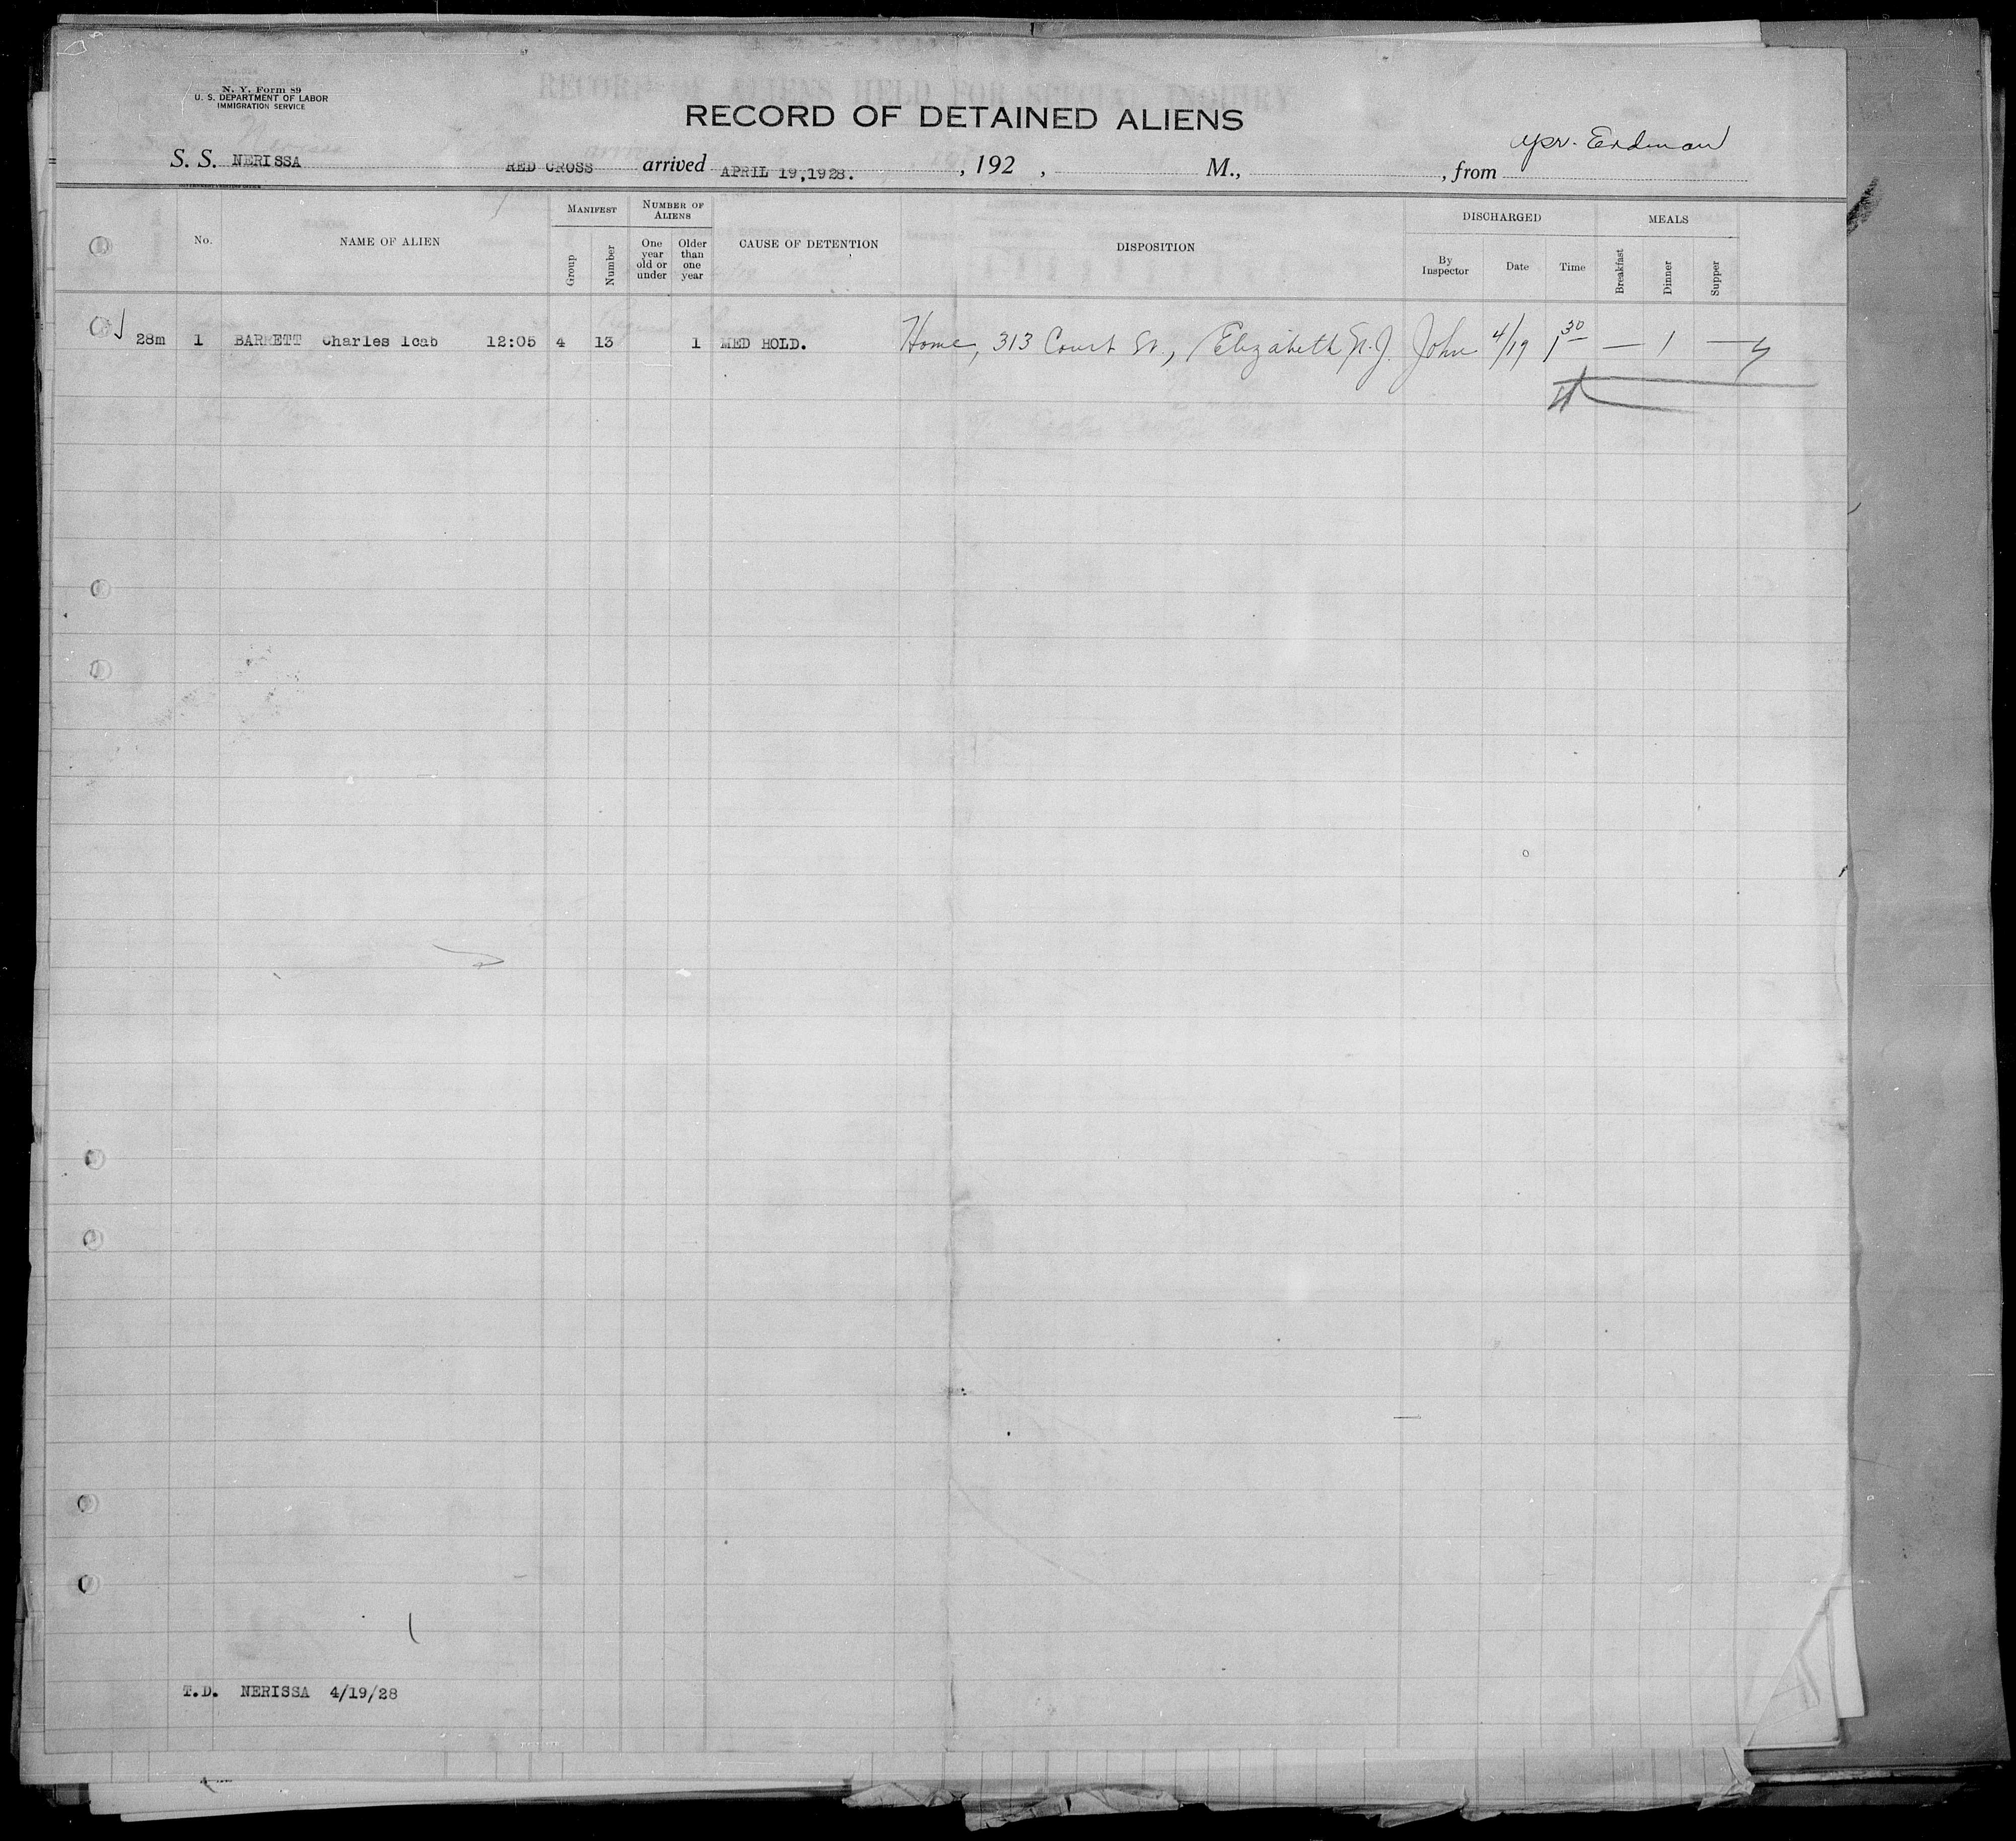 N. Y. Form 89
U. S. DEPARTMENT OF LABOR
IMMIGRATION SERVICE
RECORD OF ALIENS HELD FOR SPECIAL INQUIRY
RECORD OF DETAINED ALIENS
S. S. NERISSA RED CROSS arrived APRIL 19,1928. , 192 , M., , from Erdman
No. NAME OF ALIEN MANIFEST Group Number NUMBER OF ALIENS One year old or under Older than one year CAUSE OF DETENTION DISPOSITION DISCHARGED By Inspector Date Time MEALS Breakfast Dinner Supper
28m 1 BARRETT Charles 1cab 12:05 4 13 1 MED HOLD. Home, 313 Court St., Elizabeth N.J. John 4/19 1 30 — 1 —
T.D. NERISSA 4/19/28